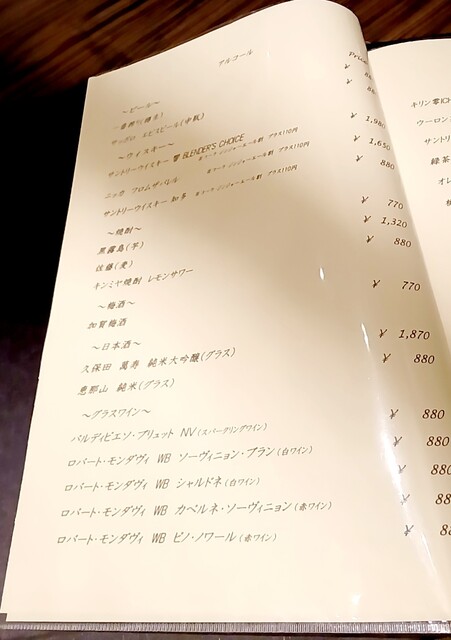 アルコール
Price
～ビール～
一番搾り(樽生) ¥ 88
サッポロ ヱビスビール(中瓶) ¥ 88
～ウイスキー～
サントリーウイスキー 響 BLENDER'S CHOICE ¥ 1,980
※コーク・ジンジャーエール割 プラス110円
ニッカ フロムザバレル ※コーク・ジンジャーエール割 プラス110円 ¥ 1,650
サントリーウイスキー 知多 ※コーク・ジンジャーエール割 プラス110円 ¥ 880
～焼酎～
黒霧島(芋) ¥ 770
佐藤(麦) ¥ 1,320
キンミヤ焼酎 レモンサワー ¥ 880
～梅酒～
加賀梅酒 ¥ 770
～日本酒～
久保田 萬寿 純米大吟醸(グラス) ¥ 1,870
恵那山 純米(グラス) ¥ 880
～グラスワイン～
バルディビエソ・ブリュット NV(スパークリングワイン) ¥ 880
ロバート・モンダヴィ WB ソーヴィニョン・ブラン(白ワイン) ¥ 880
ロバート・モンダヴィ WB シャルドネ(白ワイン) ¥ 880
ロバート・モンダヴィ WB カベルネ・ソーヴィニョン(赤ワイン) ¥ 88
ロバート・モンダヴィ WB ピノ・ノワール(赤ワイン) ¥ 8
キリン 零ICH
ウーロン
サント
緑茶
オレ